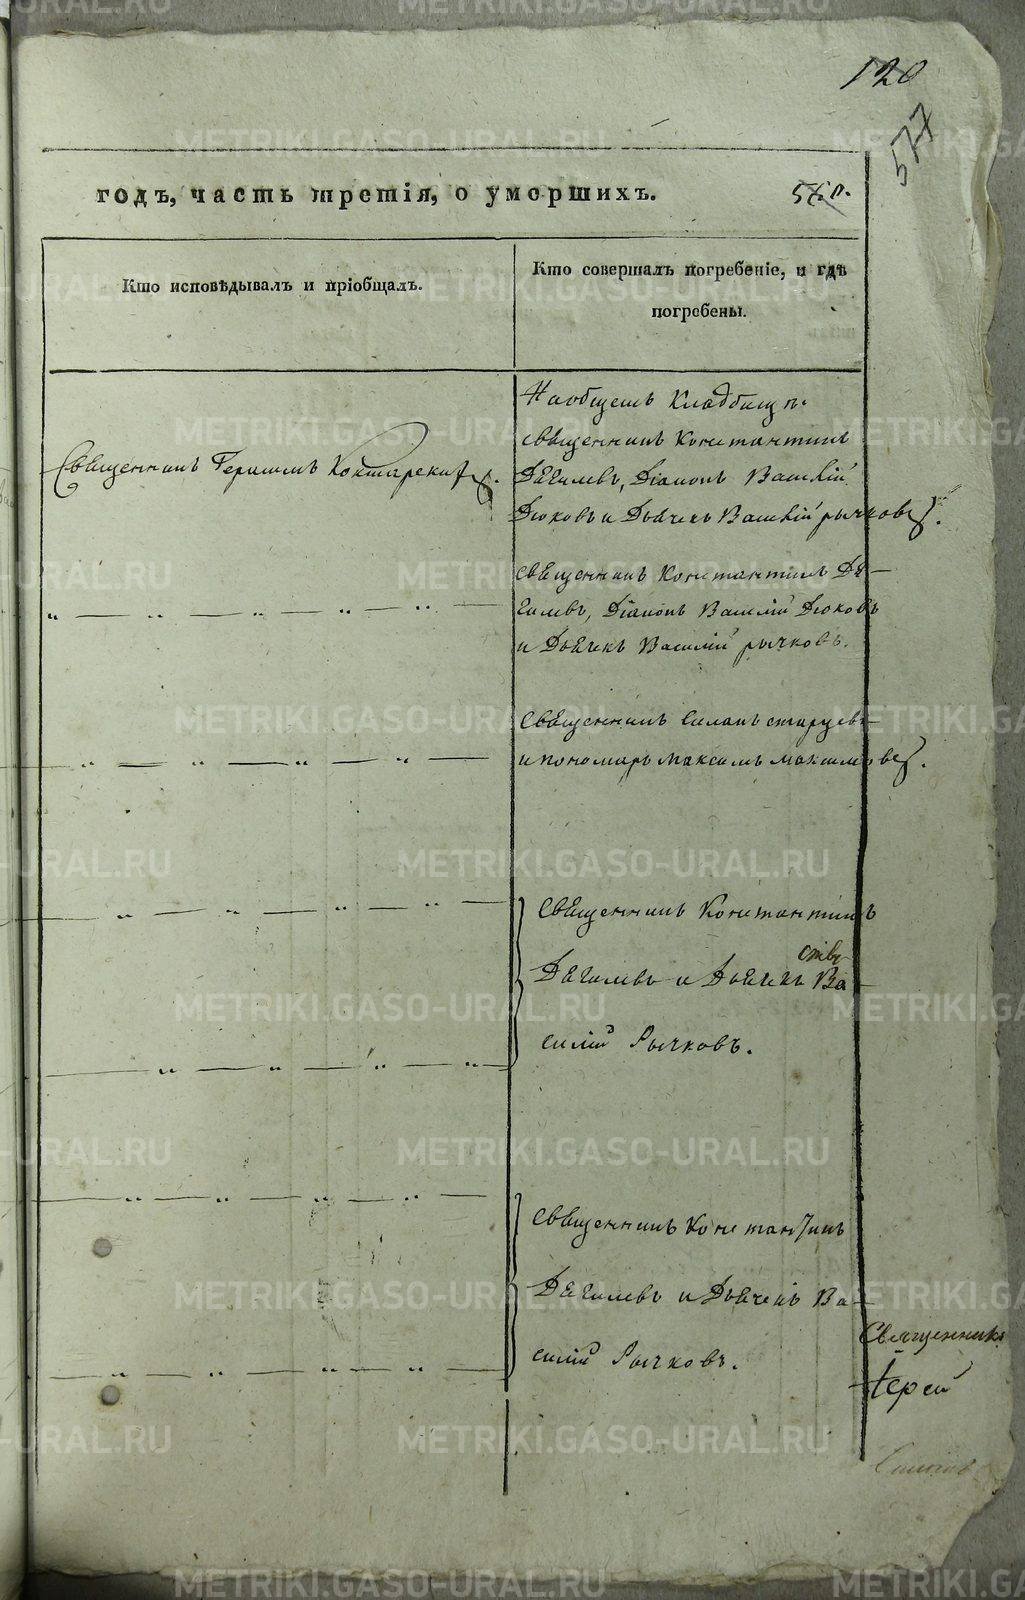 120
577
годъ, часть третія, о умершихъ.
Кто исповѣдывалъ и пріобщалъ.
Кто совершалъ погребеніе, и гдѣ
погребены.
На общемъ кладбищѣ.
священникъ Константинъ
Дягилевъ, Діаконъ Василій
Дюковъ и Дьячекъ Василій рычковъ.
Священникъ Герасимъ
священникъ Константинъ Дя-
гилевъ, Діаконъ Василій Дюковъ
и Дьячекъ Василій рычковъ.
священникъ Симонъ старцевъ
и пономарь максимъ максимовъ.
священникъ Константинъ
Дягилевъ и Дьячекъ Ва-
силій Рычковъ.
священникъ Константинъ
Дягилевъ и Дьячекъ Ва-
силій Рычковъ.
Священникъ
METRIKI.GASO-URAL.RU